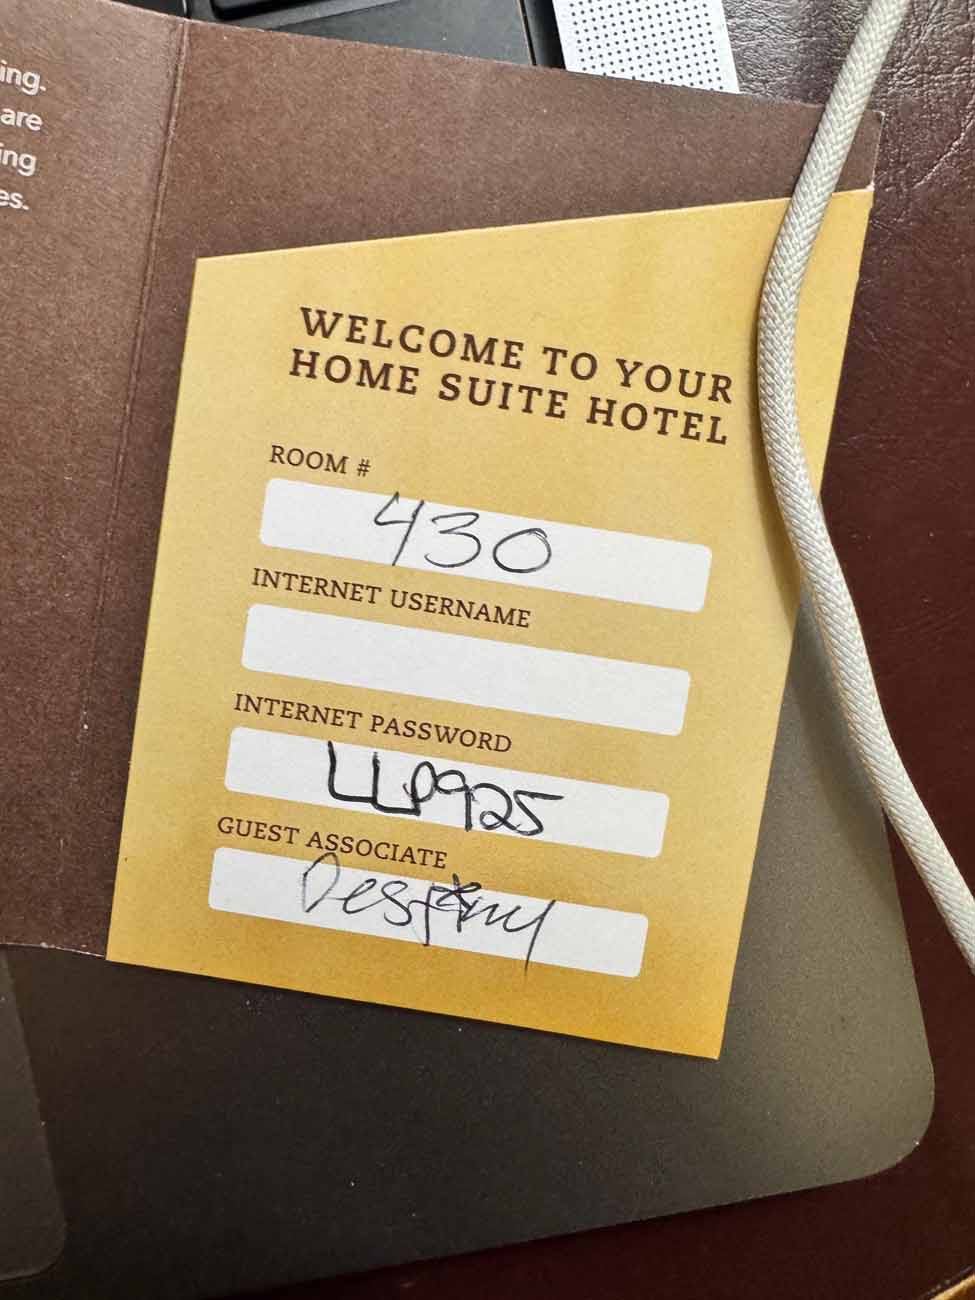 ing.
are
ing
es.
WELCOME TO YOUR
HOME SUITE HOTEL
ROOM #
430
INTERNET USERNAME
INTERNET PASSWORD
LLP925
GUEST ASSOCIATE
Destiny